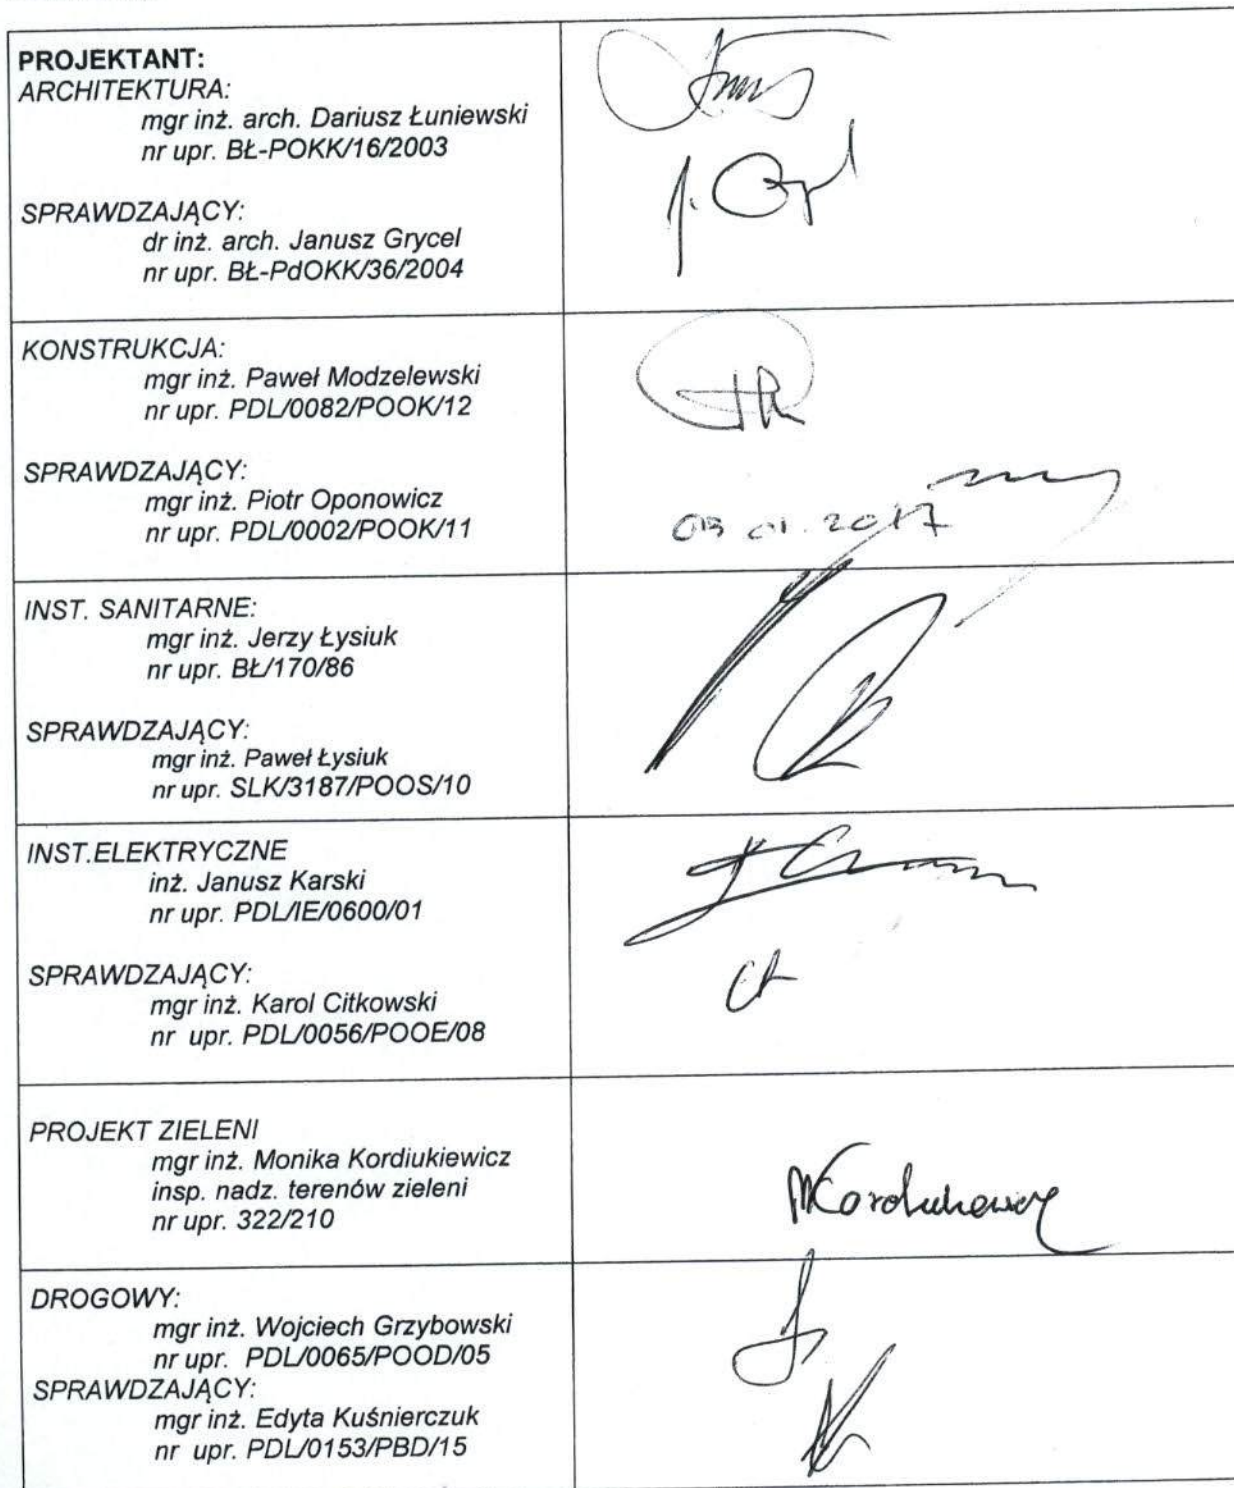 PROJEKTANT:
ARCHITEKTURA:
mgr inż. arch. Dariusz Łuniewski
nr upr. BŁ-POKK/16/2003
SPRAWDZAJĄCY:
dr inż. arch. Janusz Grycel
nr upr. BŁ-PdOKK/36/2004
KONSTRUKCJA:
mgr inż. Paweł Modzelewski
nr upr. PDL/0082/POOK/12
SPRAWDZAJĄCY:
mgr inż. Piotr Oponowicz
nr upr. PDL/0002/POOK/11
01.2017
INST. SANITARNE:
mgr inż. Jerzy Łysiuk
nr upr. BŁ/170/86
SPRAWDZAJĄCY:
mgr inż. Paweł Łysiuk
nr upr. SLK/3187/POOS/10
INST.ELEKTRYCZNE
inż. Janusz Karski
nr upr. PDL/IE/0600/01
SPRAWDZAJĄCY:
mgr inż. Karol Citkowski
nr upr. PDL/0056/POOE/08
PROJEKT ZIELENI
mgr inż. Monika Kordiukiewicz
insp. nadz. terenów zieleni
nr upr. 322/210
DROGOWY:
mgr inż. Wojciech Grzybowski
nr upr. PDL/0065/POOD/05
SPRAWDZAJĄCY:
mgr inż. Edyta Kuśnierczuk
nr upr. PDL/0153/PBD/15